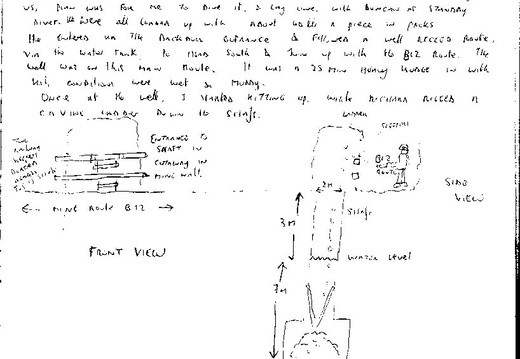 us, plan was for me to dive it, a long dive, with Duncan as standby
diver. We were all loaded up with about a piece in packs
We entered via the Backdoor entrance & followed a well pegged route,
via the water tank to Mains South & join up with the B12 route. The
well was on this main route. It was a 25 min heavy trudge in with
kit, conditions were wet & muddy.
Once at the well, I started kitting up, while Richard rigged a
caving ladder down the shaft.
ENTRANCE TO
SHAFT IN
CUTAWAY IN
MINE WALL.
MINE ROUTE B12
FRONT VIEW
LADDER
B12
ROUTE
SIDE
VIEW
2M
SHAFT
3M
WATER LEVEL
7M